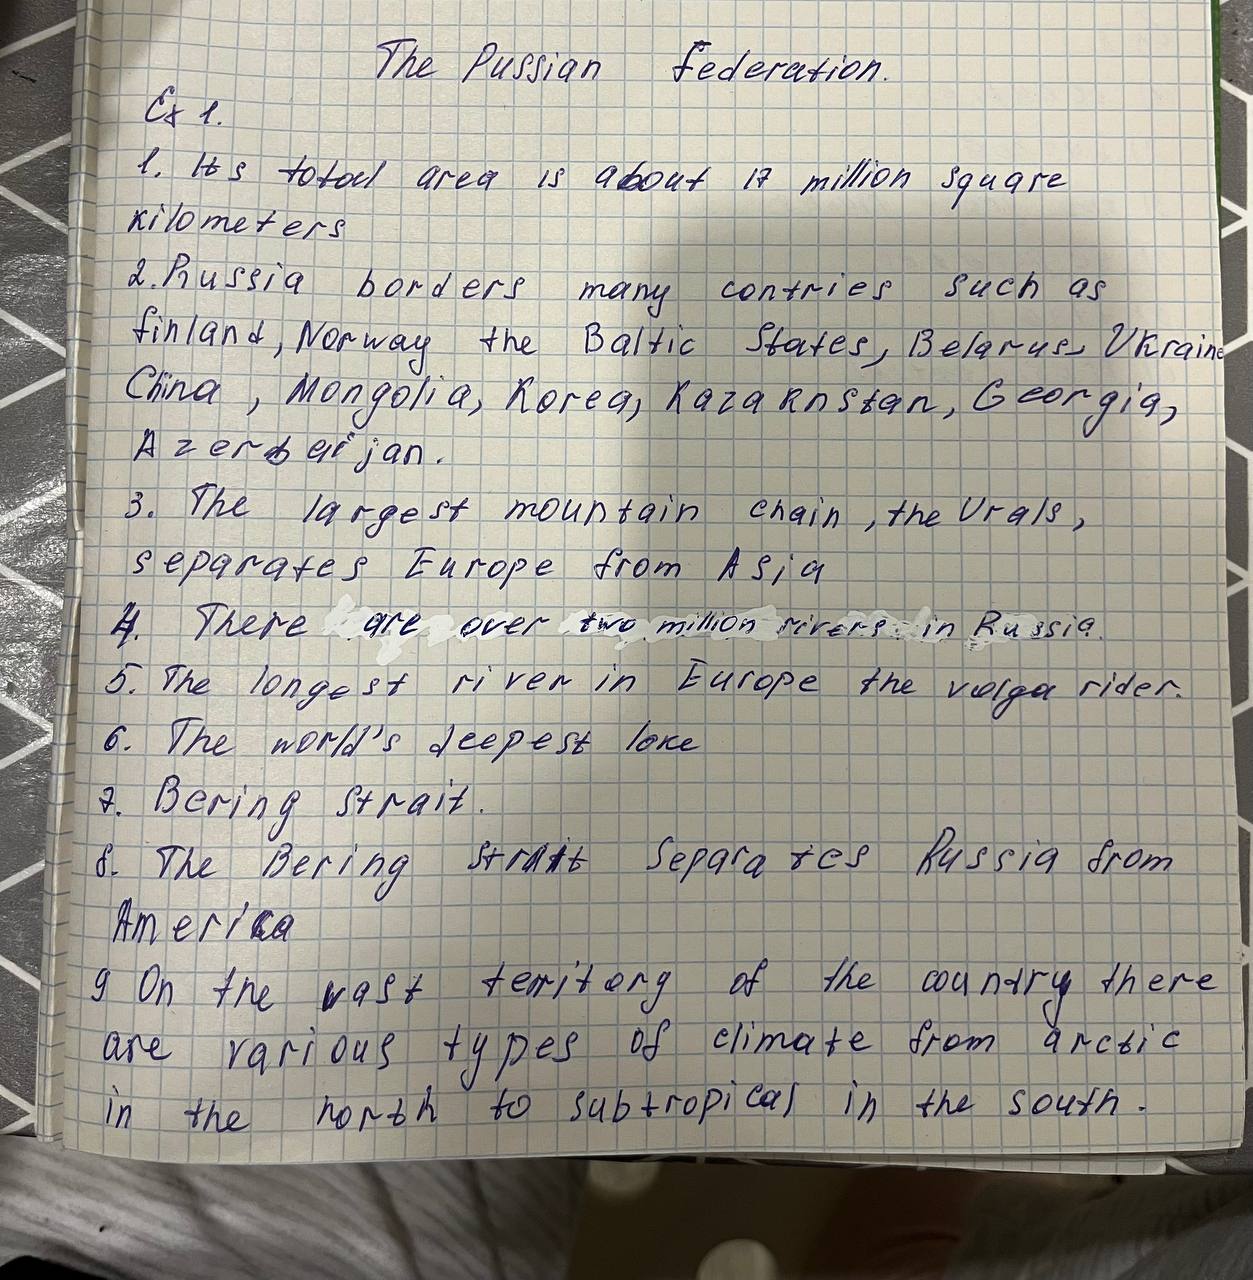 The Pussian Federation.
Ex 1.
1. Its total area is about 17 million square
kilometers
2. Russia borders many contries such as
finland, Norway the Baltic States, Belarus, Ukraine
China, Mongolia, Korea, Kazaknstan, Georgia,
Azerbaijan.
3. The largest mountain chain, the Urals,
separates Europe from Asia
4. There are over two million rivers in Russia.
5. The longest river in Europe the volga rider.
6. The world's deepest loke
7. Bering strait.
8. The Bering strait separates Russia from
America
9 On the vast territory of the country there
are various types of climate from arctic
in the north to subtropical in the south.